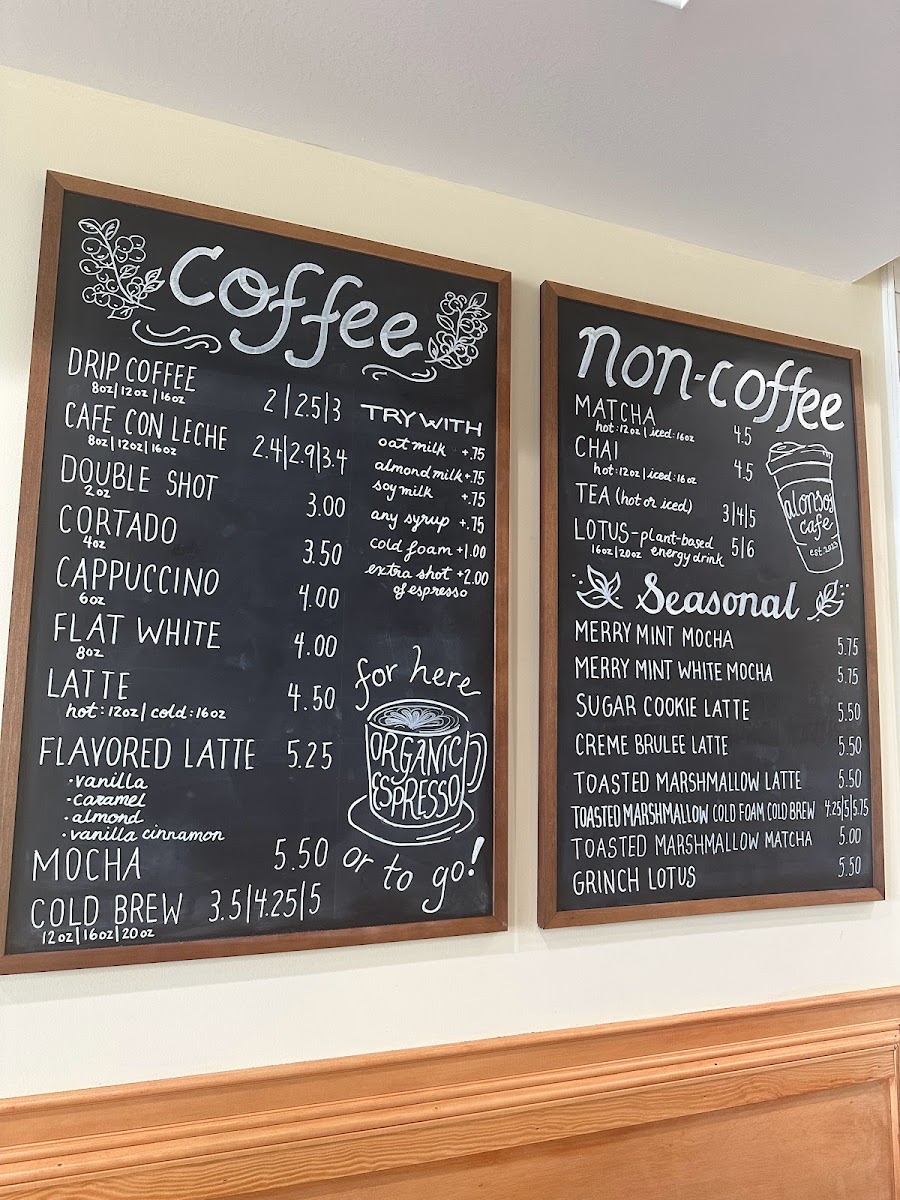 Coffee
DRIP COFFEE 2|2.5|3
8oz|12oz|16oz
CAFE CON LECHE 2.4|2.9|3.4
8oz|12oz|16oz
DOUBLE SHOT 3.00
2oz
CORTADO 3.50
4oz
CAPPUCCINO 4.00
6oz
FLAT WHITE 4.00
8oz
LATTE 4.50
hot: 12oz | cold: 16oz
FLAVORED LATTE 5.25
·vanilla
·caramel
·almond
·vanilla cinnamon
MOCHA 5.50
COLD BREW 3.5|4.25|5
12oz|16oz|20oz
TRY WITH
oat milk +.75
almond milk +.75
soy milk +.75
any syrup +.75
cold foam +1.00
extra shot +2.00
of espresso
for here
ORGANIC
ESPRESSO
or to go!
non-coffee
MATCHA 4.5
hot: 12oz | iced: 16oz
CHAI 4.5
hot: 12oz | iced: 16oz
TEA (hot or iced) 3|4|5
LOTUS-plant-based 5|6
16oz|20oz energy drink
alonsos
cafe
est. 2023
Seasonal
MERRY MINT MOCHA 5.75
MERRY MINT WHITE MOCHA 5.75
SUGAR COOKIE LATTE 5.50
CREME BRULEE LATTE 5.50
TOASTED MARSHMALLOW LATTE 5.50
TOASTED MARSHMALLOW COLD FOAM COLD BREW 4.25|5|5.75
TOASTED MARSHMALLOW MATCHA 5.00
GRINCH LOTUS 5.50